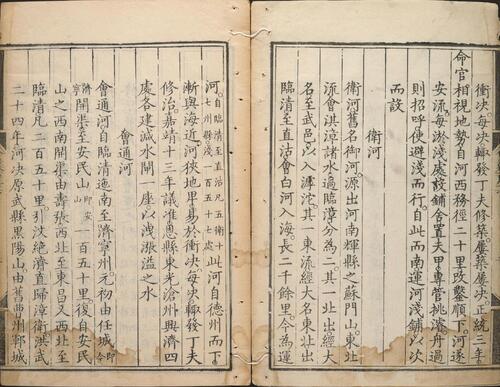 衝決每決輒發丁夫修築屢築屢決正統三年
命官相視地勢自河西務徑二十里改鑿順下河遂
安流每淤淺處設鋪舍置夫甲專管挑濬舟過
則招呼使避淺而行自此而南運河淺鋪以次
而設
衛河
衛河舊名御河源出河南輝縣之蘇門山東北
流會淇漳諸水過臨漳分為二其一北出經大
名至武邑以入滹沱其一東流經大名東北出
臨清至直沽會白河入海長二千餘里今為運
河自臨清至直沽凡五衛十七州縣淺一百五十七處此河自德州而下
漸與海近河狹地卑易於衝決每決輒發丁夫
修治嘉靖十三年議准恩縣東光滄州興濟四
處各建減水閘一座以洩漲溢之水
會通河
會通河自臨清迤南至濟寧州元初由任城今即濟寧
開渠至安民山即安山一百五十里復自安民
山之西南開渠由壽張西北至東昌又西北至
臨清凡二百五十里引汶絕濟直歸漳衛洪武
二十四年河決原武縣黑陽山由舊曹州鄆城